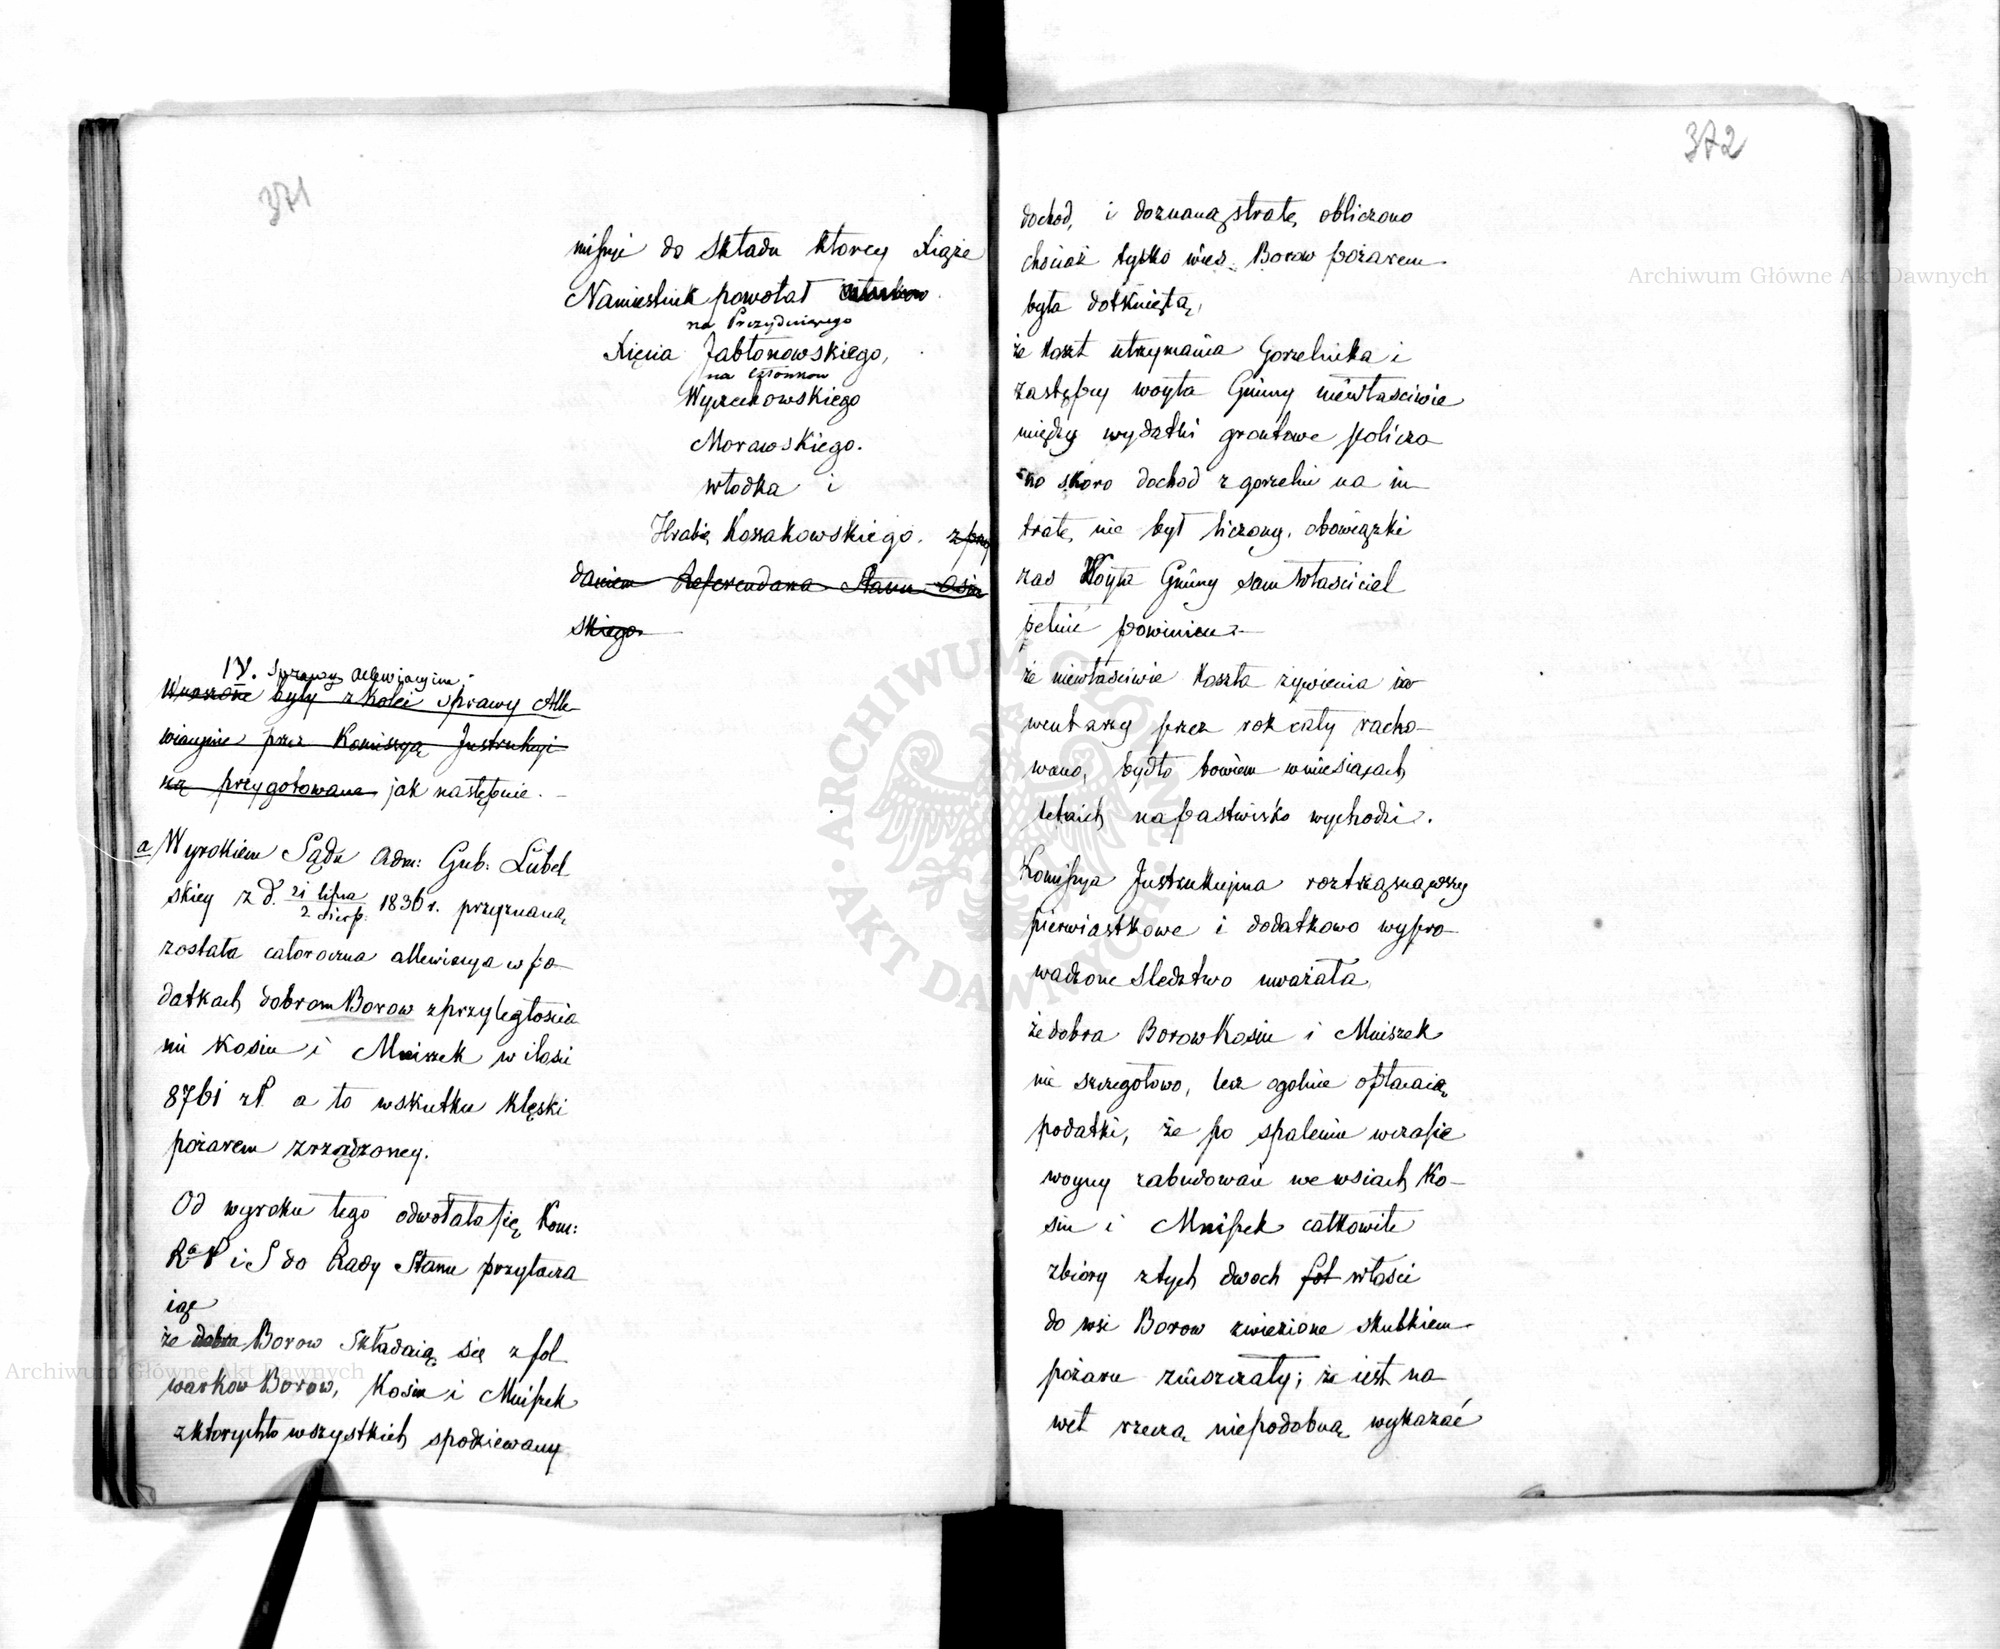 371
missyi do składu ktorey Xiąże
Namiestnik powołał członkow
na Prezyduiącego
Xięcia Jabłonowskiego,
na Członkow
Wyczechowskiego
Morawskiego.
Włodka i
Hrabię Kossakowskiego. z przy
daniem Referendarza Stanu Osin
skiego
IV. Sprawy allewiacyine.
Wnaszone były z kolei sprawy Alle-
wiacyine przez Komissyą Instrukcyi
ną przygotowane jak następuie. –
a Wyrokiem Sądu Adm: Gub: Lubel
skiey z d. 21 lipca / 2 Sierp. 1836 r. przyznaną
została całoroczna allewiacya w po–
datkach dobrom Borow z przyległościa
mi Kosin i Mniszek w ilości
8761 zł a to wskutku klęski
pożarem zrządzoney.
Od wyroku tego odwołała się Kom:
R. P i S do Rady Stanu przytacza
iąc
że dobra Borow składaią się z fol
warkow Borow, Kosin i Mniszek
z ktorychto wszystkich spodziewany
372
dochod, i doznaną stratę obliczono
chociaż tylko wieś Borow pożarem
była dotkniętą,
że koszt utrzymania Gorzelnika i
zastępcy woyta Gminy niewłaściwie
między wydatki grontowe policzo
no skoro dochod z gorzelni na in–
tratę nie był liczony, obowiązki
zas Woyta Gminy sam właściciel
pełnić powinien –
że niewłaściwie koszta żywienia in–
wentarzy przez rok cały racho–
wano, bydło bowiem w miesiącach
letnich na pastwisko wychodzi.
Komissya Instrukcyina roztrząsnąwszy
pierwiastkowe i dodatkowo wypro–
wadzone sledztwo uważała
że dobra Borow Kosin i Mniszek
nie szczegołowo, lecz ogolnie opłacaią
podatki, że po spaleniu w czasie
woyny zabudowań we wsiach Ko–
sin i Mniszek całkowite
zbiory z tych dwoch fol włości
do wsi Borow zwiezione skutkiem
pożaru zniszczały; że iest na–
wet rzeczą niepodobną wykazać
Archiwum Główne Akt Dawnych
Archiwum Główne Akt Dawnych
ARCHIWUM GŁÓWNE AKT DAWNYCH